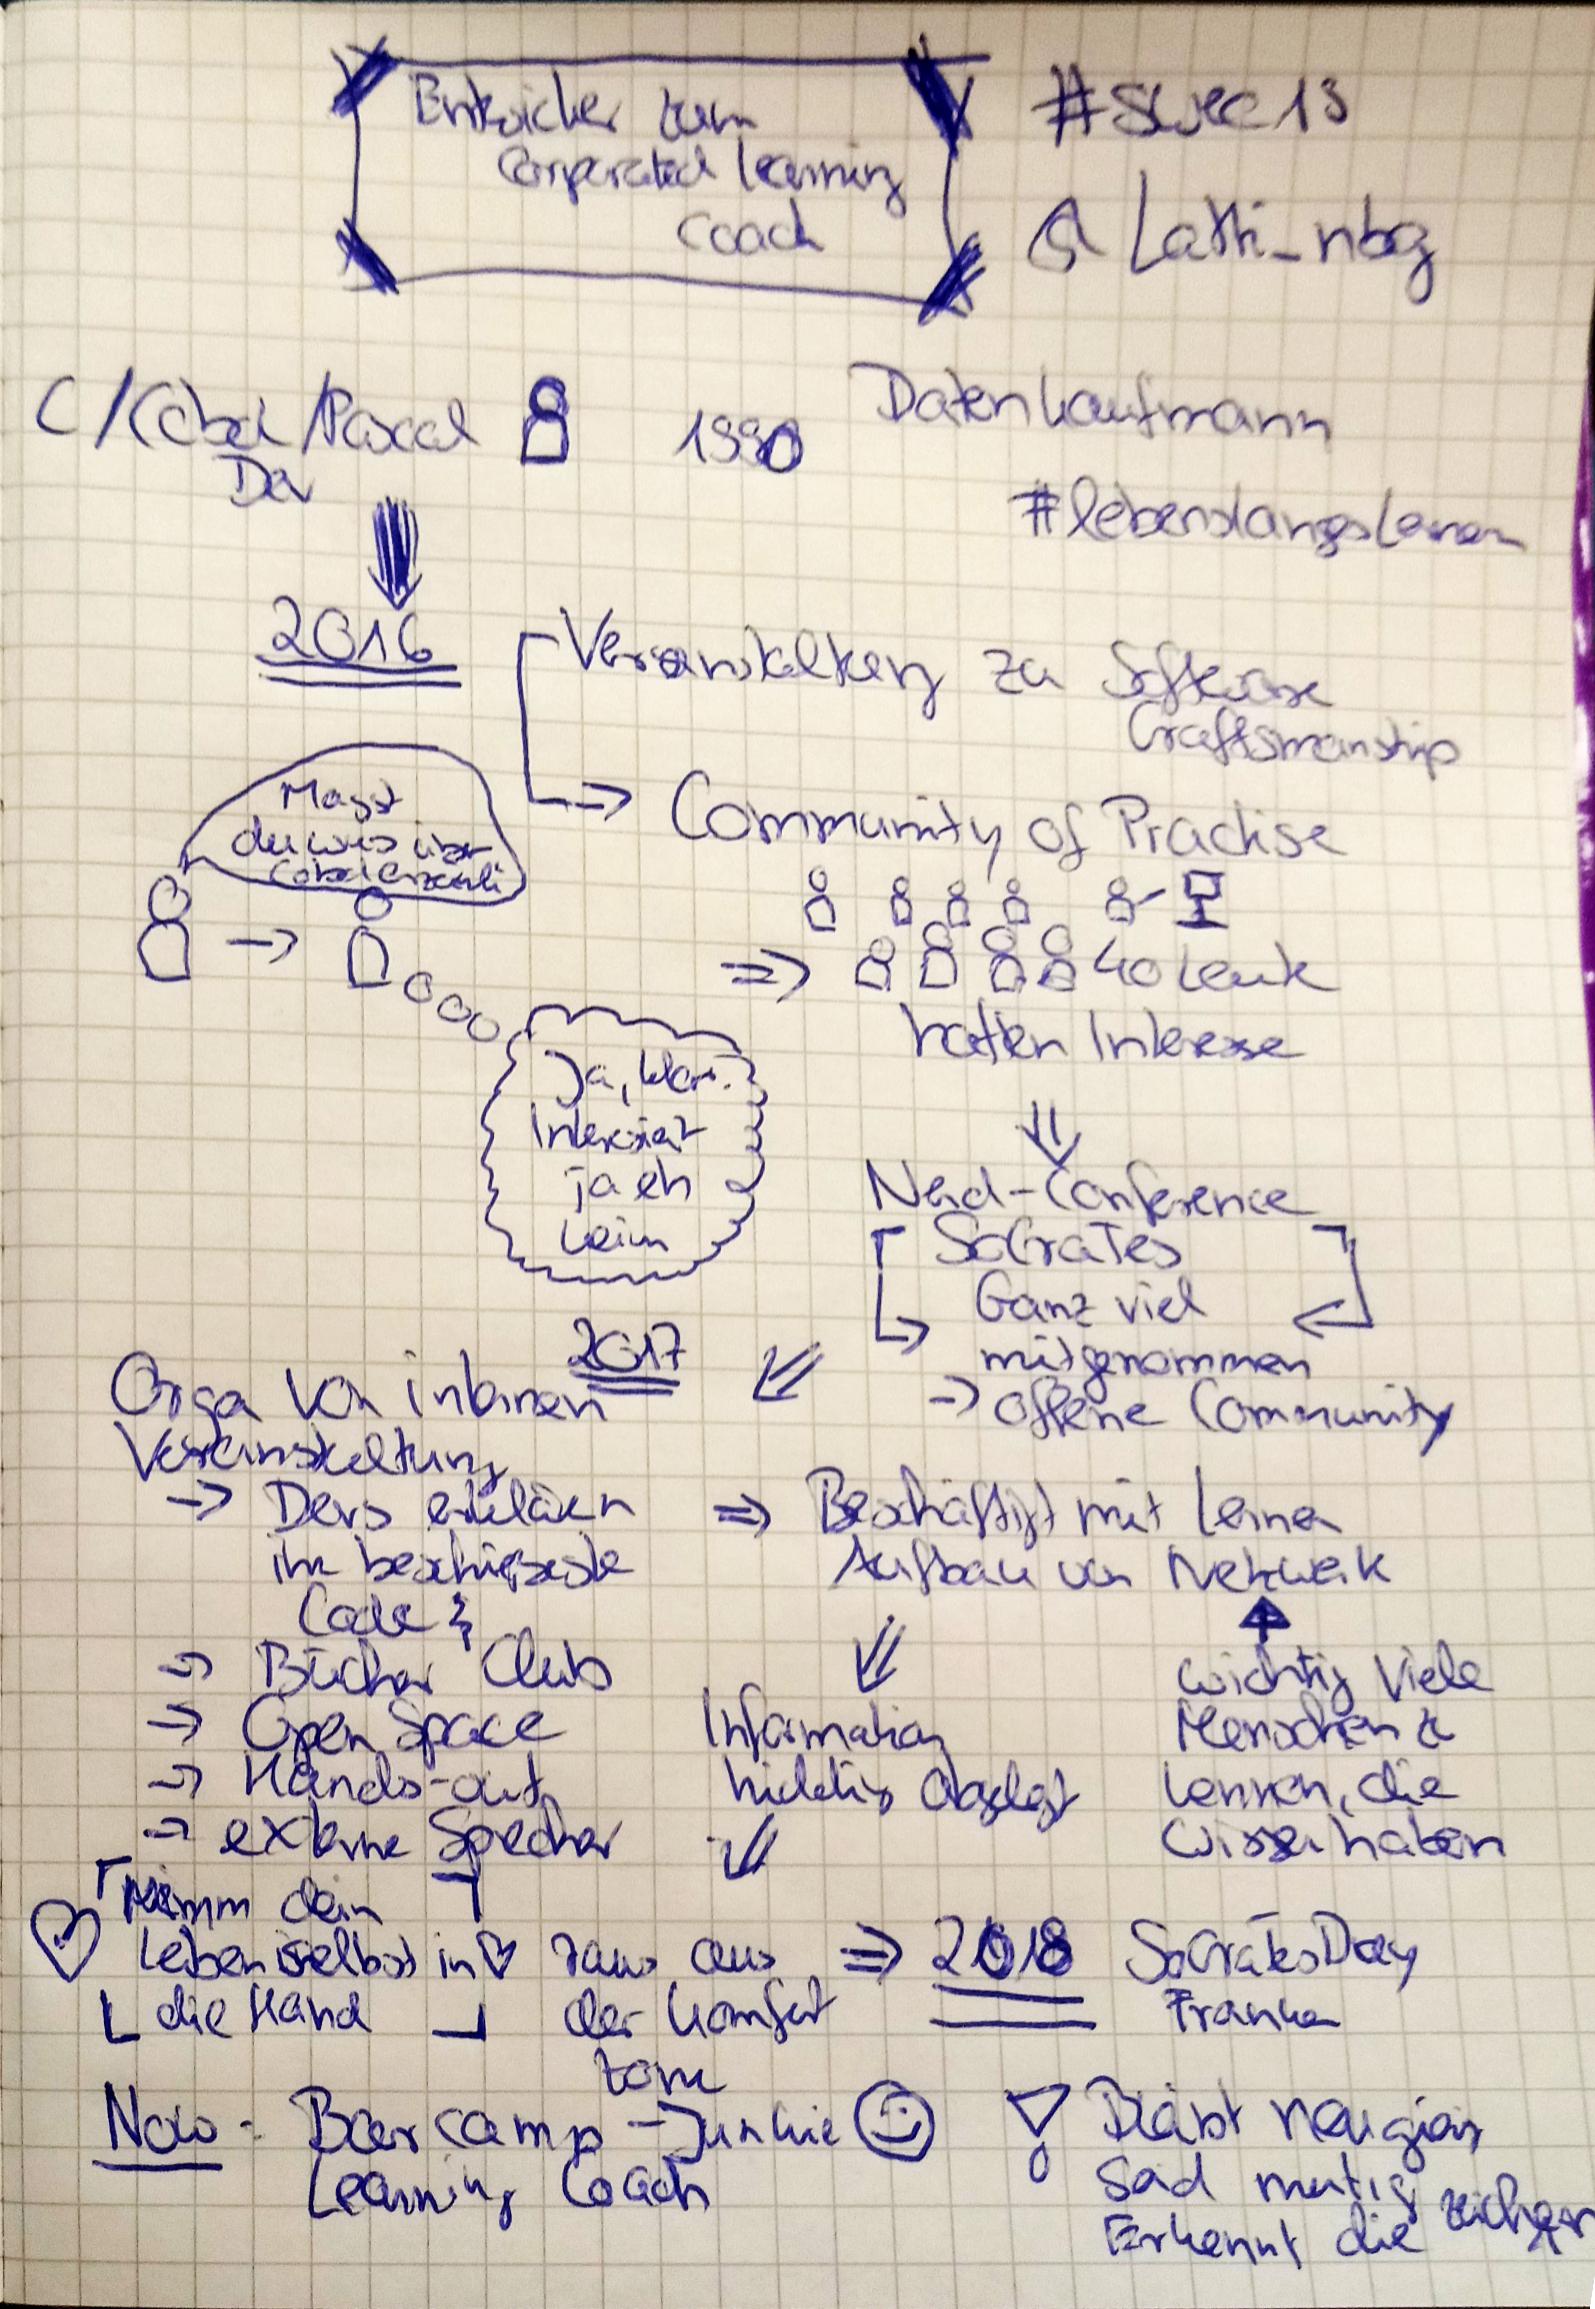 Entwickler zum
Corporated Learning
Coach
#swec19
@Latti_nbg
C/Cobol/Pascal
Dev
1990
Datenkaufmann
#lebenslangesLernen
2016
Veranstaltung zu Software
Craftsmanship
Community of Practise
Magst
du was über
Cobol erzähli
40 Leute
hatten Interesse
Ja, klar.
Intersiert
ja eh
keim
Nerd-Conference
SoCraTes
Ganz viel
mitgenommen
-> offene Community
2017
Orga von internen
Veranstaltung
-> Devs erklären
ihr beschissenste
Code
-> Bücher Club
-> Open Space
-> Hands-out
-> externe Specher
=> Beschäftigt mit Lernen
Aufbau von Netzwerk
wichtig viele
Menschen zu
kennen, die
Wissen haben
Information
abgelegt
Nimm dein
Leben selbst in
die Hand
raus aus
der Komfort
zone
=> 2018 SoCraTes Day
Franken
Now - Barcamp-Junkie
Learning Coach
Bleibt neugierig
Seid mutig
Erkennt die zeichen